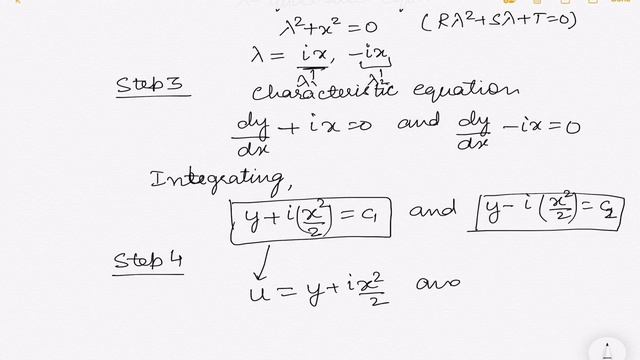 λ²+x²=0 (Rλ²+Sλ+T=0)
λ = ix, -ix
λ¹ λ²
Step3 characteristic equation
dy/dx + ix=0 and dy/dx - ix=0
Integrating,
y+i(x²/2)=c₁ and y-i(x²/2)=c₂
Step4
u = y+ix²/2 and